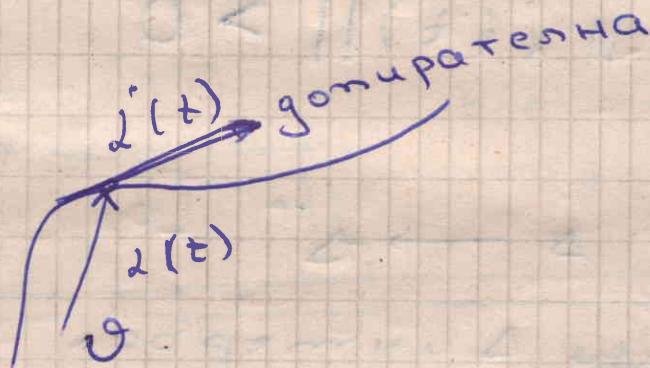 допирателна
α̇(t)
α(t)
O